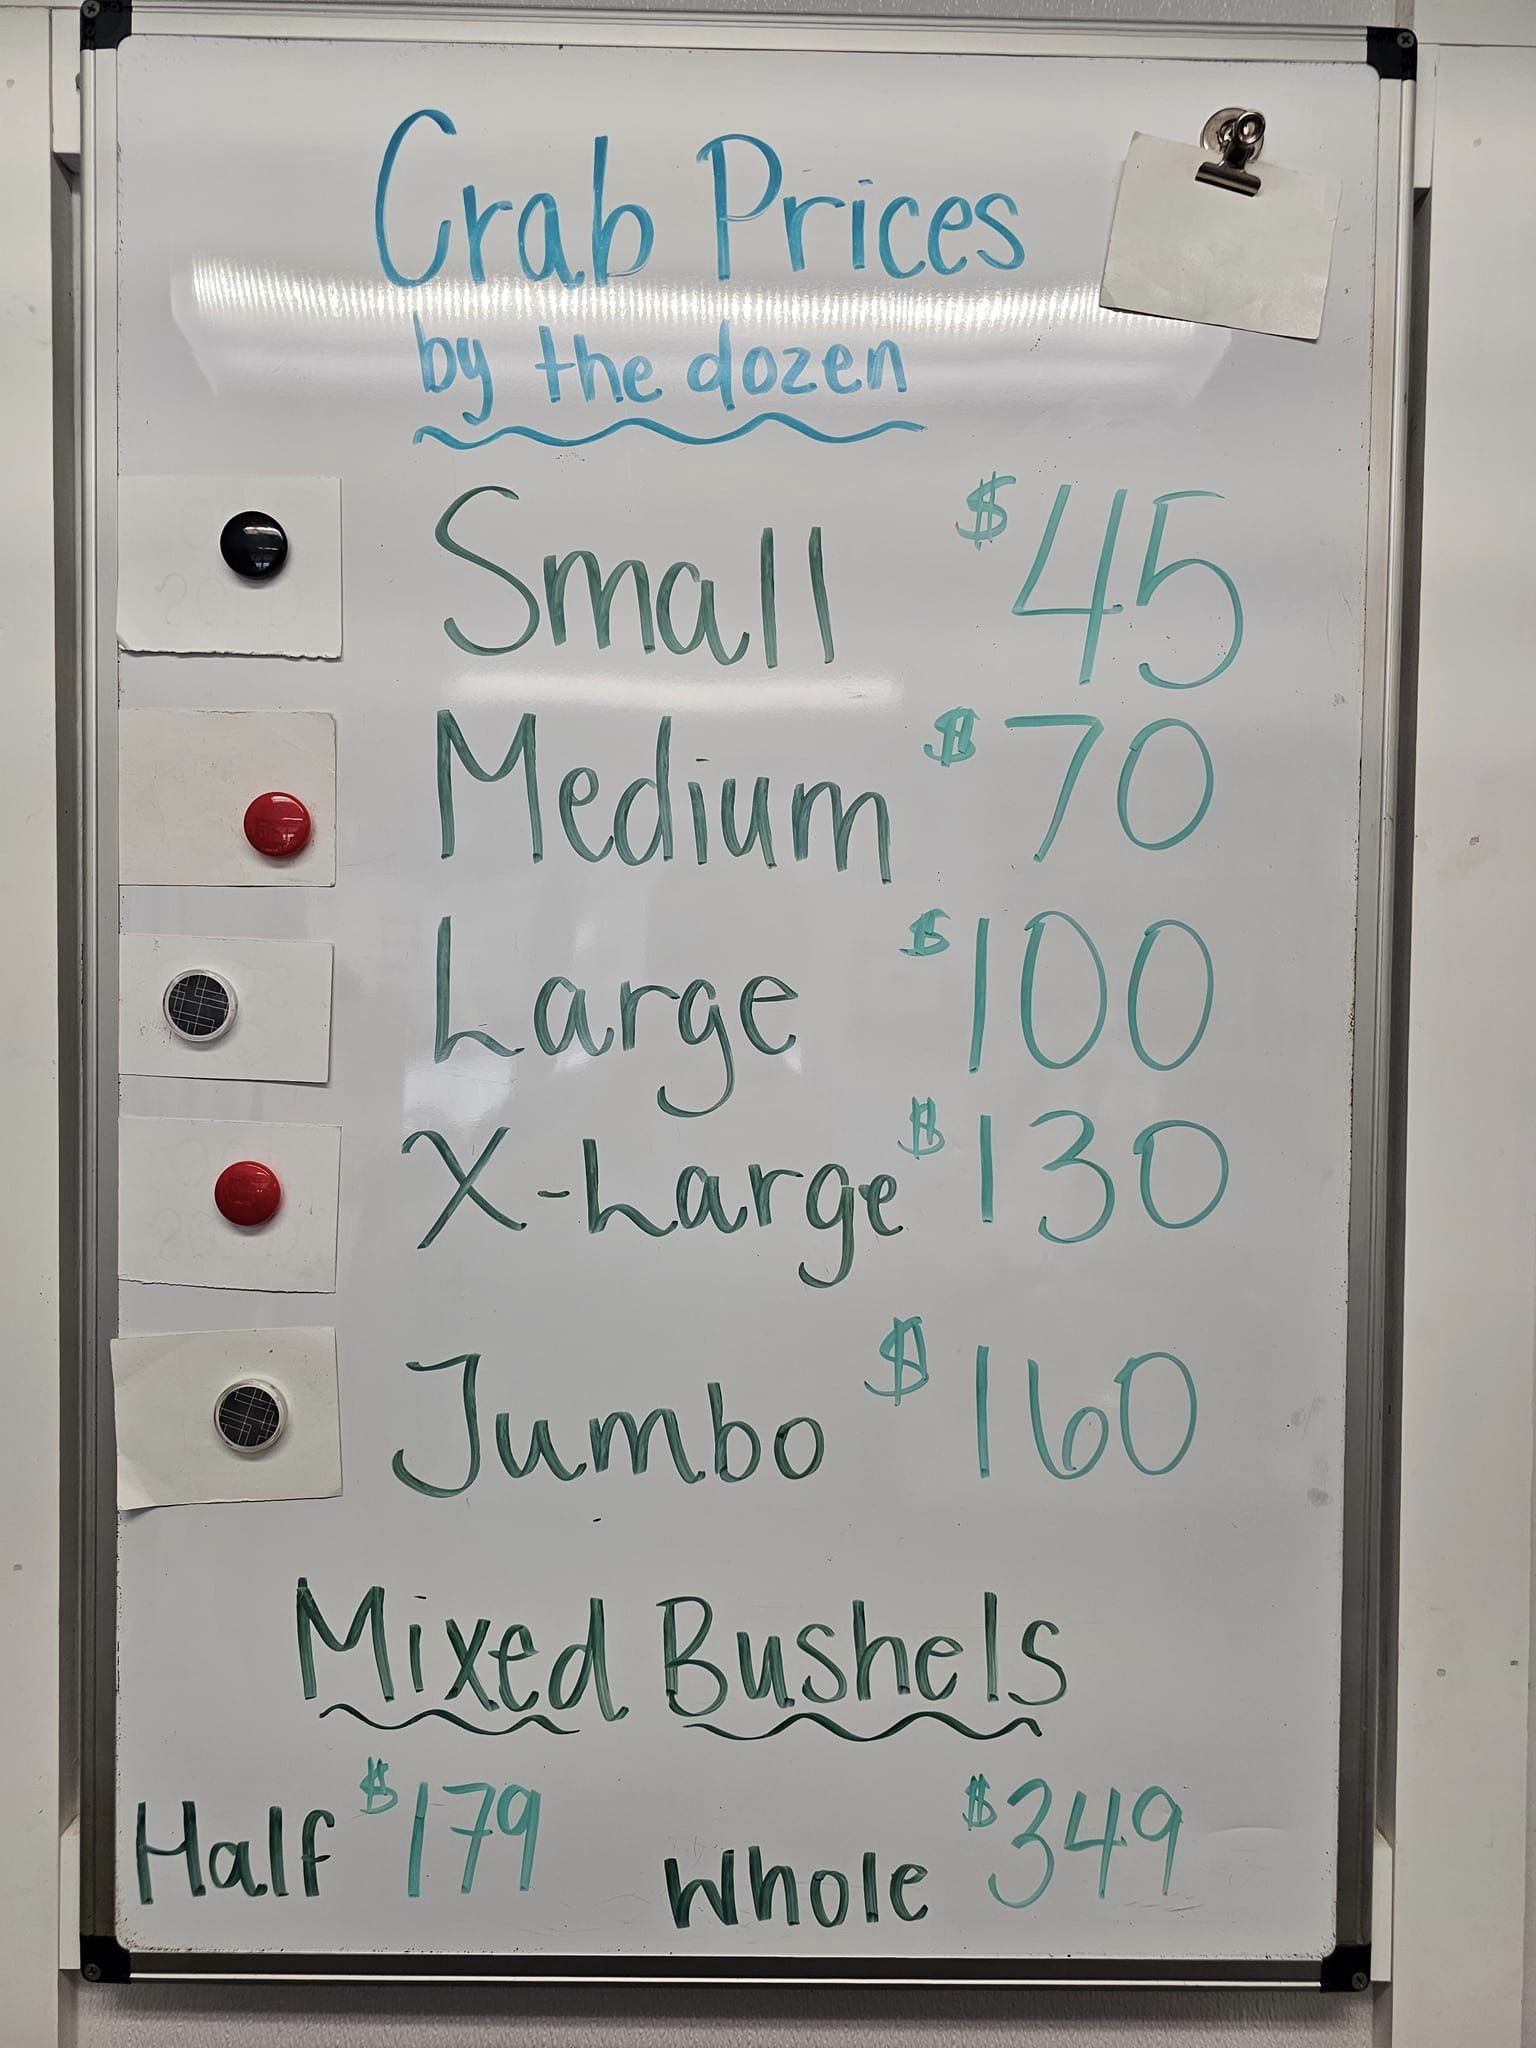 Crab Prices
by the dozen
Small $45
Medium $70
Large $100
X-Large $130
Jumbo $160
Mixed Bushels
Half $179 Whole $349